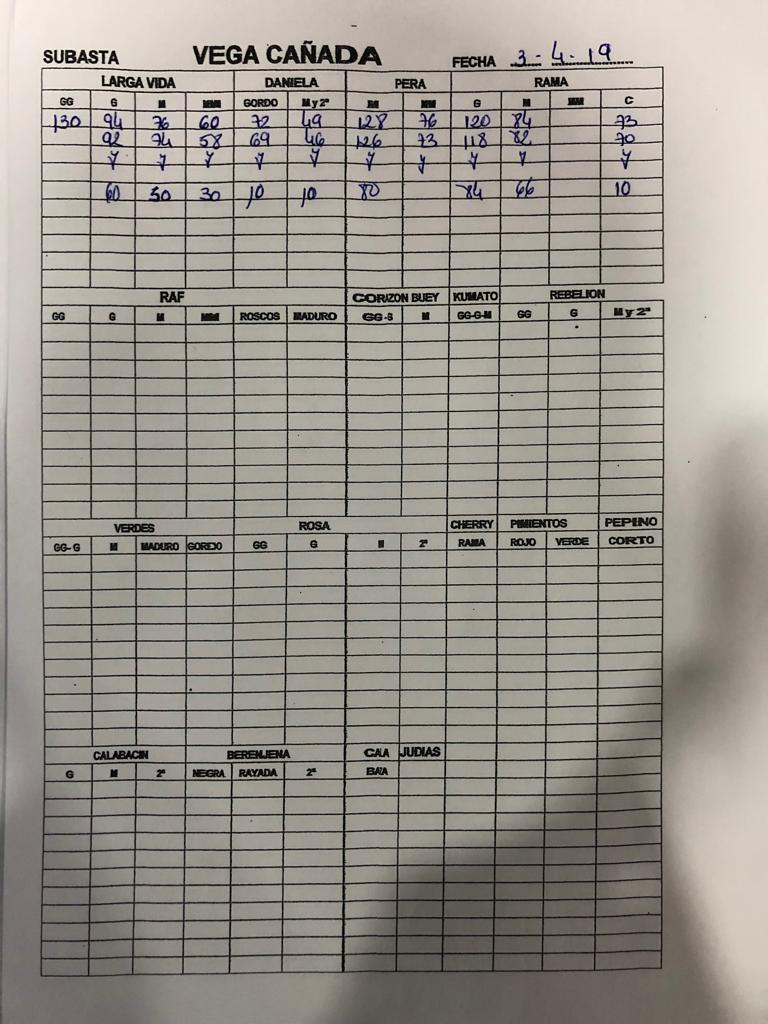 SUBASTA VEGA CAÑADA FECHA 3-4-19
LARGA VIDA DANIELA PERA RAMA
GG G M MM GORDO M y 2ª M MM G M MM C
130 94 76 60 72 49 128 76 120 84 73
92 74 58 69 46 126 73 118 82 70
y y y y y y y y y y
60 50 30 10 10 80 84 66 10
RAF CORIZON BUEY KUMATO REBELION
GG G M MM ROSCOS MADURO GG-G M GG-G-M GG G M y 2ª
VERDES ROSA CHERRY PIMIENTOS PEPINO
GG-G M MADURO GORDO GG G M 2ª RAMA ROJO VERDE CORTO
CALABACIN BERENJENA CAA JUDIAS
G M 2ª NEGRA RAYADA 2ª BAA